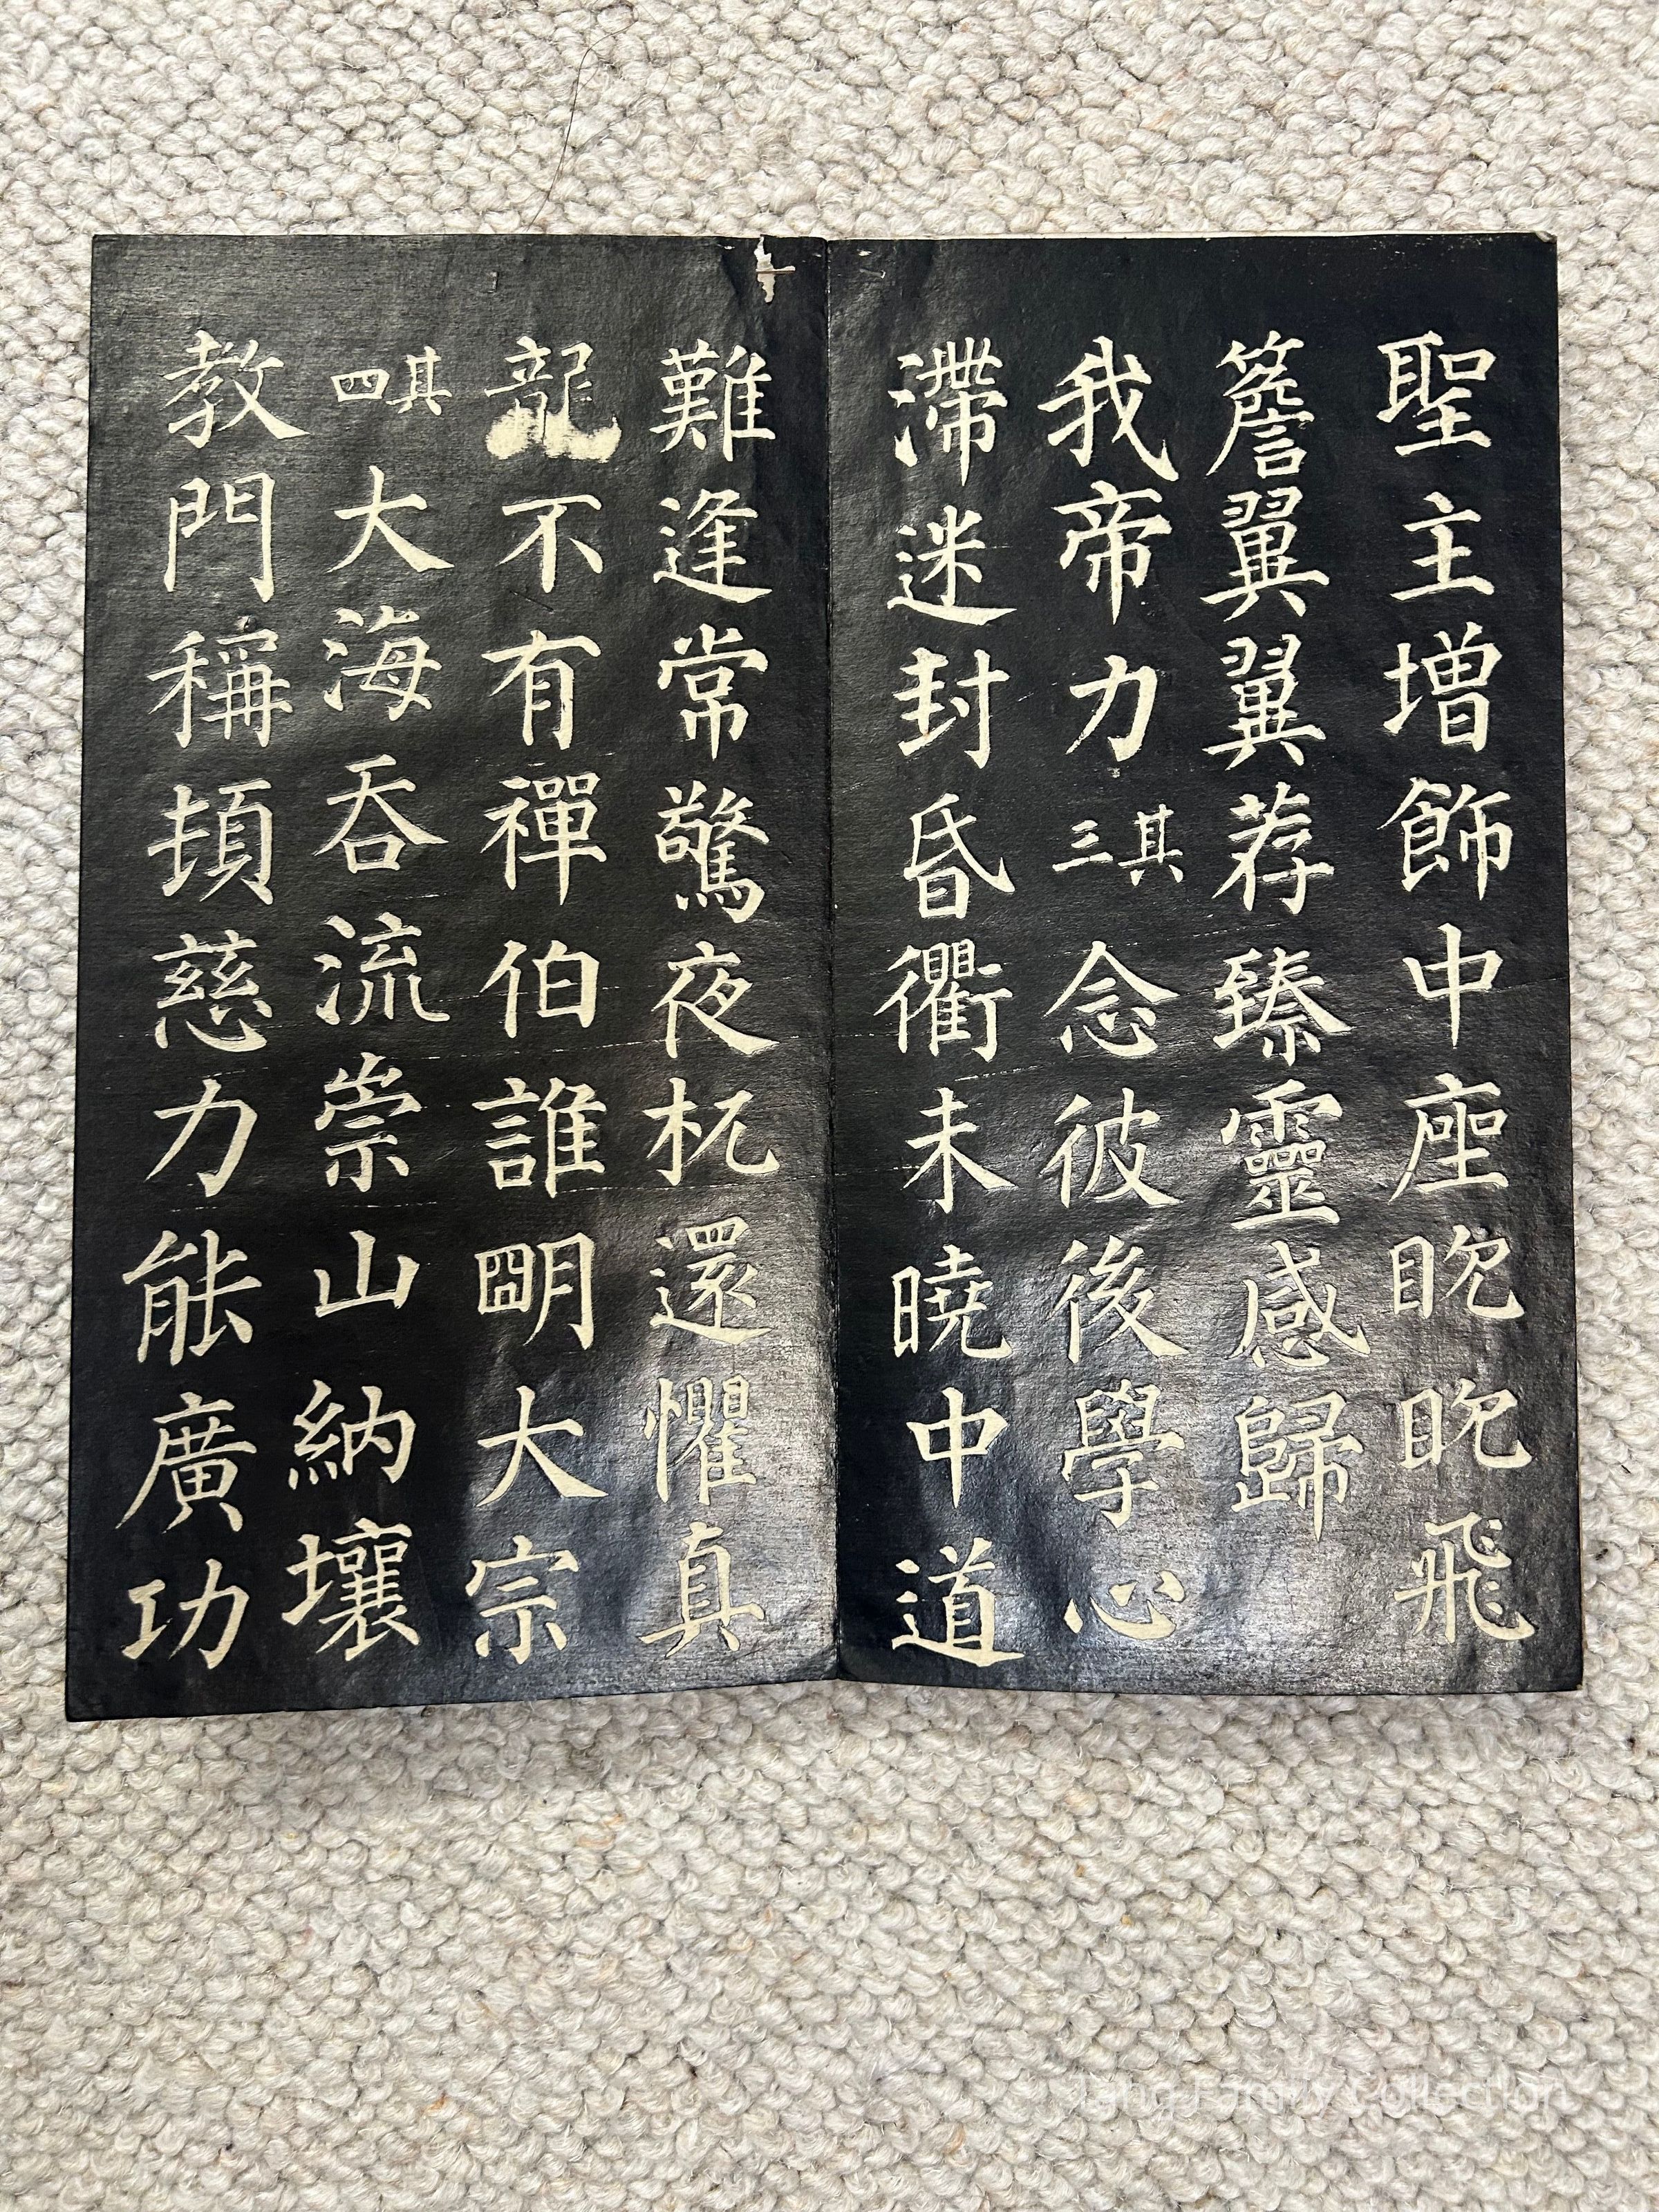 聖主增飾中座眈眈飛
簷翼翼荐臻靈感歸
我帝力其三念彼後學心
滯迷封昏衢未曉中道
難逢常驚夜杌還懼真
龍不有禪伯誰明大宗
其四大海吞流崇山納壤
教門稱頓慈力能廣功
Tang Family Collection